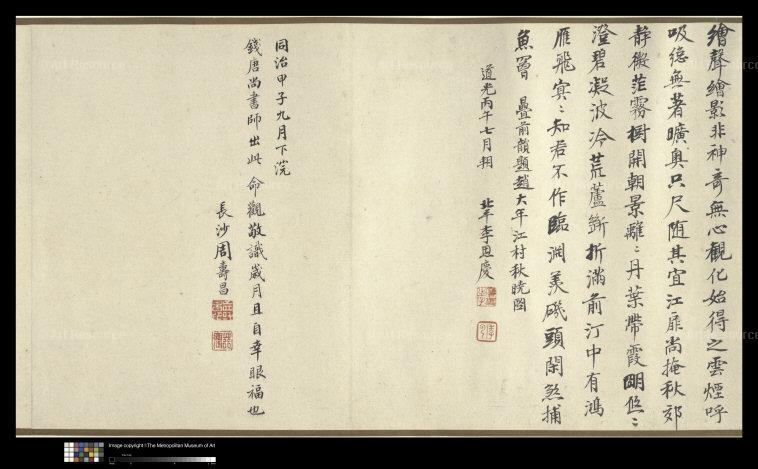 繪聲繪影非神奇無心觀化始得之雲煙呼
吸總無著曠奥只尺随其宜江扉尚掩秋郊
静微茫霧樹開朝景離〻丹葉帶霞明𠈓〻
澄碧凝波冷荒蘆斷折滿前汀中有鴻
雁飛冥〻知君不作臨淵羨磯頭閑煞捕
魚罾 疊前韻題趙大年江村秋曉圖
道光丙午七月朔 北平李恩慶
同治甲子九月下浣
錢唐尚書師出此 命觀敬識歲月且自幸眼福也
長沙周壽昌
Image copyright ©The Metropolitan Museum of Art